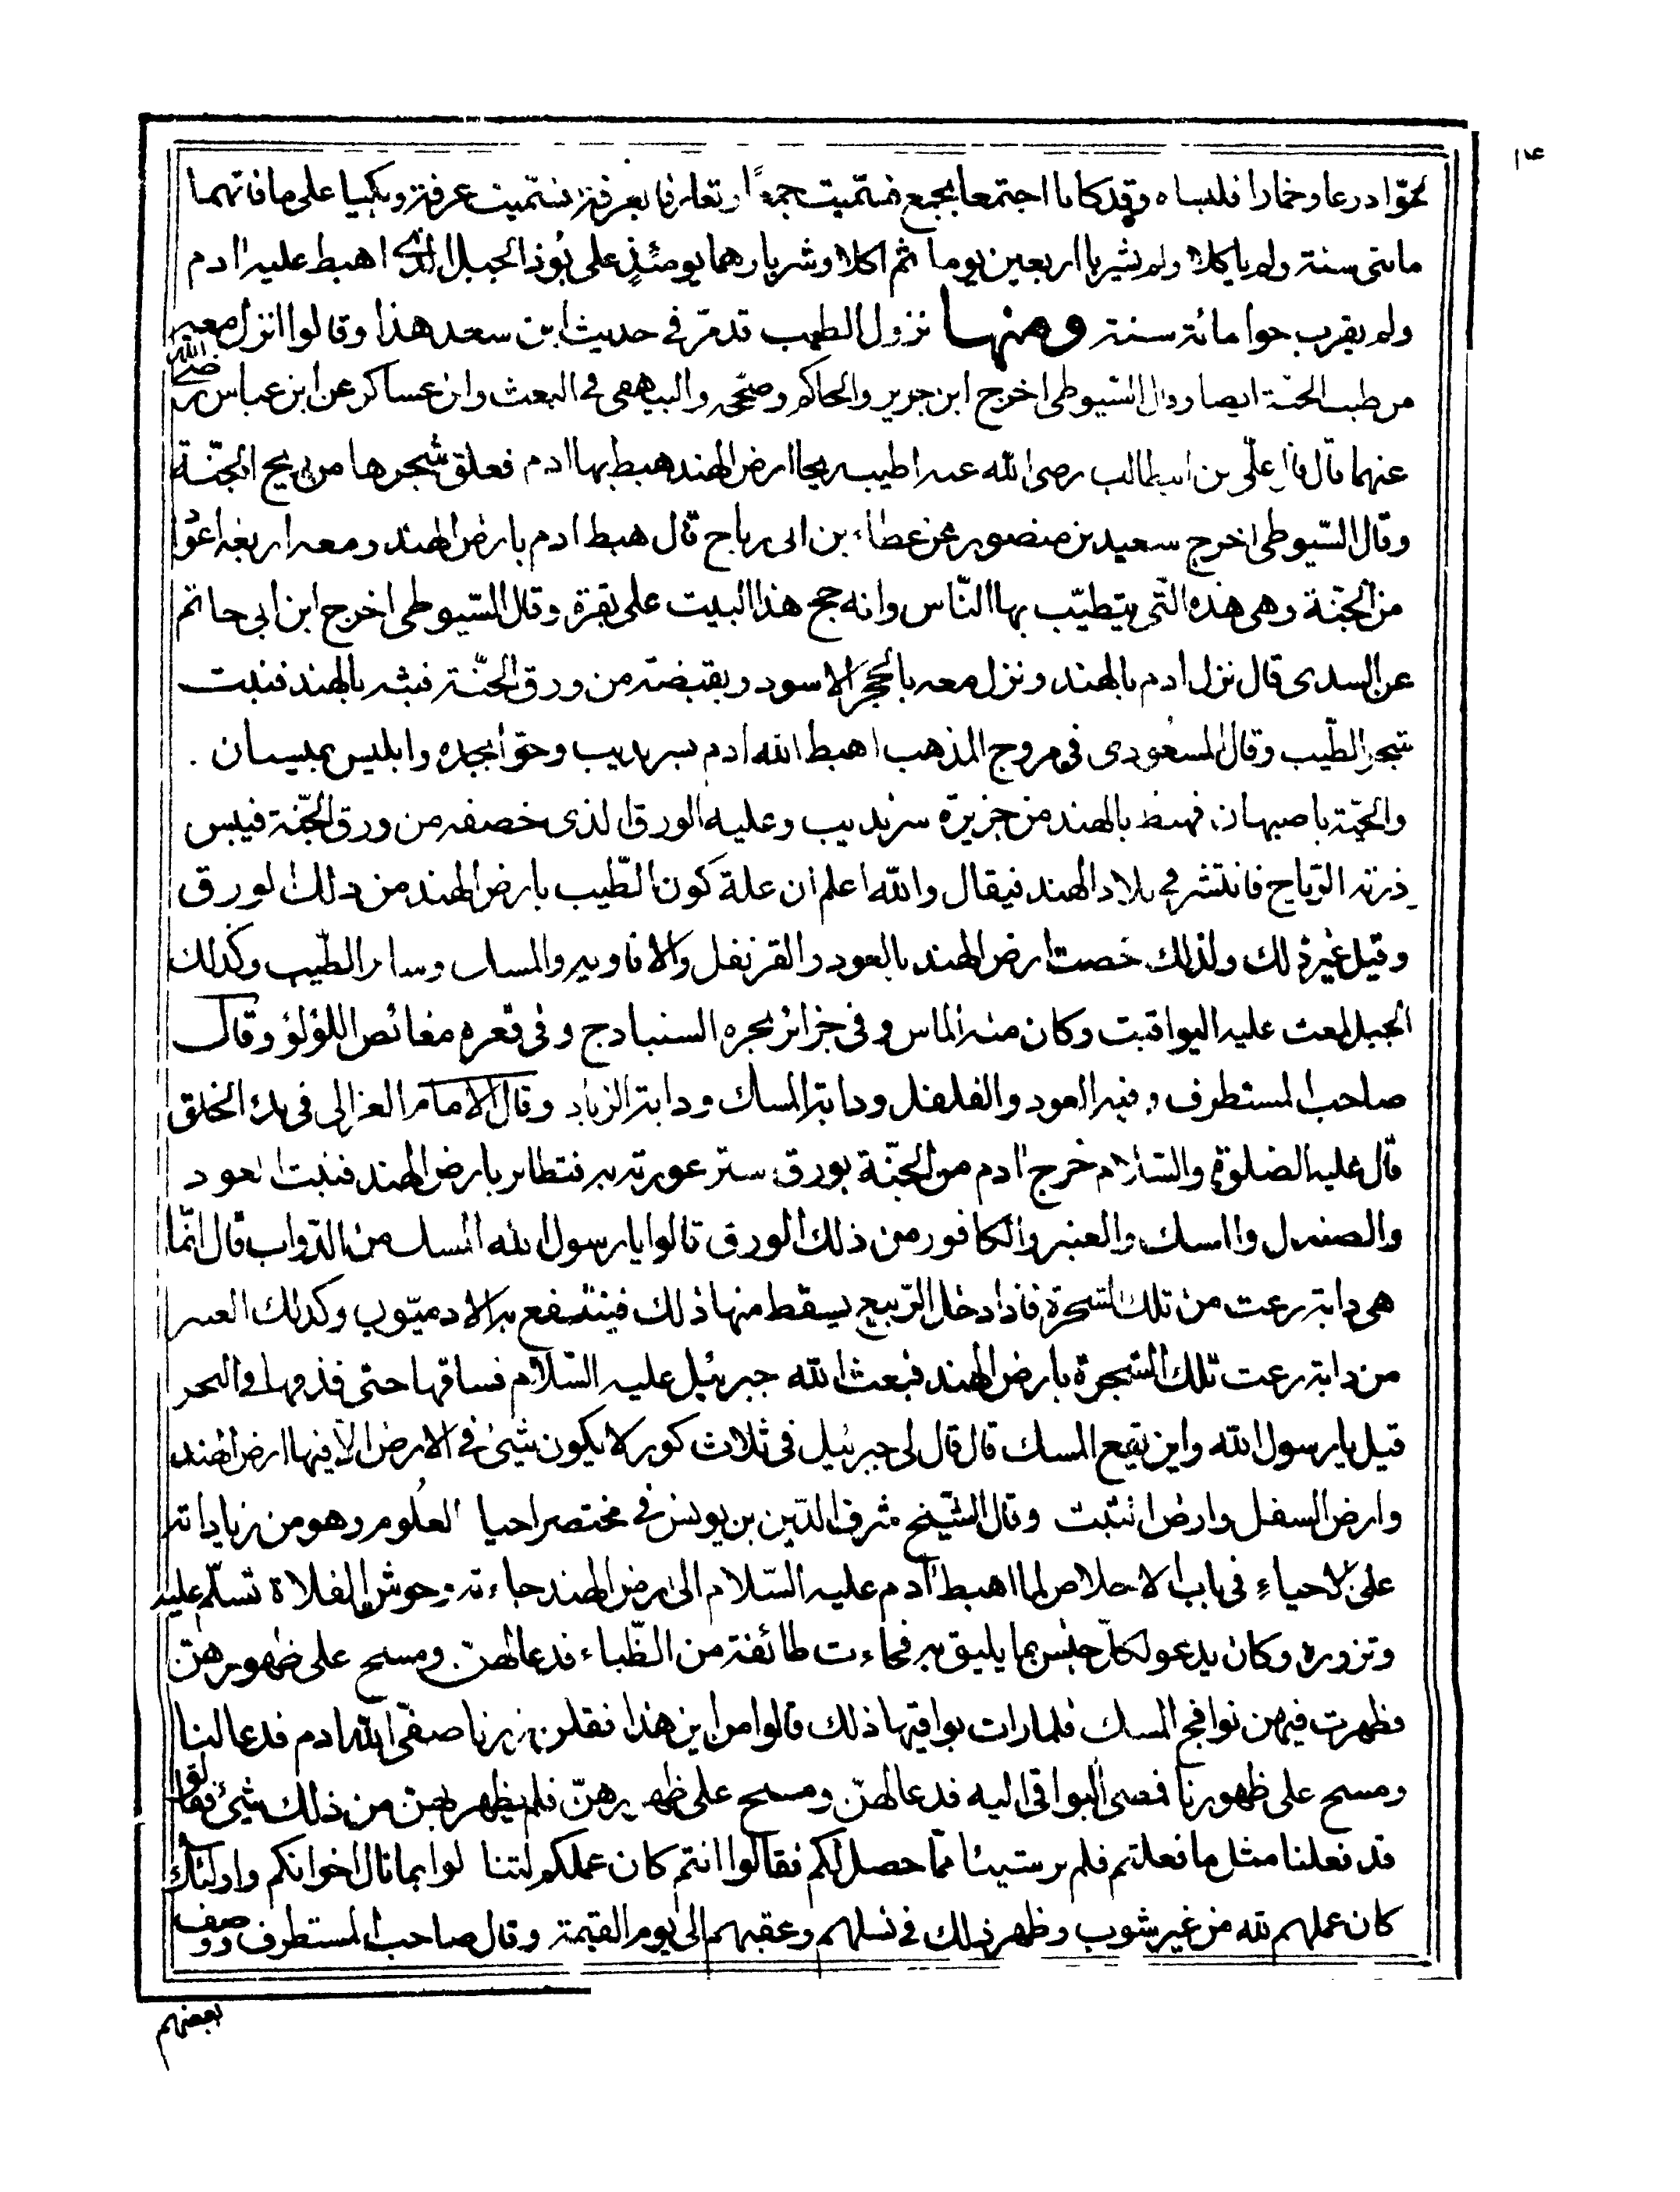 ١٤
لحوّا درعا وخمارا فلبساه وقد كانا اجتمعا بجمع فسمّيت جمعًا وتعارفا بعرفة فسمّيت عرفة وبكيا على ما فاتهما
مائتى سنة ولم ياكلا ولم يشربا اربعين يوما ثم اكلا وشربا وهما يومئذٍ على بُوذ الجبل الذى اهبط عليه ادم
ولم يقرب حوا مائة سنة ومنها نزول الطيب قد مرّ فى حديث ابن سعد هذا وقالوا انزل معه
من طيب الجنة ايضا وقال السّيوطى اخرج ابن جرير والحاكم وصحّحه والبيهقى فى البعث وابن عساكر عن ابن عباس رضى الله
عنهما قال قال علىّ بن ابيطالب رضى الله عنه اطيب ريحا ارض الهند هبط بها ادم فعلق شجرها من ريح الجنّة
وقال السّيوطى اخرج سعيد بن منصور عن عطاء بن ابى رباح قال هبط ادم بارض الهند ومعه اربعة اعوُاد
من الجنّة وهى هذه التّى يتطيّب بها النّاس وانه حج هذا البيت على بقرة وقال السّيوطى اخرج ابن ابى حاتم
عن السدى قال نزل ادم بالهند ونزل معه بالحجر الاسود وبقبضة من ورق الجنّة فبثه بالهند فنبتت
شجر الطّيب وقال المسعُودى فى مروج المذهب اهبط الله ادم بسرنديب وحوّا بجده وابليس ببيسان .
والحيّة باصبهان فهبط بالهند من جزيرة سرنديب وعليه الورق الذى خصفه من ورق الجنّة فيبس
فذرته الرّياح فانتشر فى بلاد الهند فيقال والله اعلم ان علة كون الطّيب بارض الهند من ذلك الورق
وقيل غير ذلك ولذلك خصت ارض الهند بالعود والقرنفل والافاويه والمسك وسائر الطّيب وكذلك
الجبل لمعت عليه اليواقيت وكان منه الماس وفى جزائر بحره السنبادج وفى قعره مغائص اللؤلؤ وقال
صاحب المستطرف وفيه العود والفلفل ودابة المسك ودابة الزباد وقال الامام الغزالى فى بدء الخلق
قال عليه الصلوة والسّلام خرج ادم من الجنّة بورق ستر عورته به فتطاير بارض الهند فنبت العود
والصندل والمسك والعنبر والكافور من ذلك الورق قالوا يا رسول الله المسك من الدّواب قال انّما
هى دابة رعت من تلك الشّجرة فاذا دخل الرّبيع يسقط منها ذلك فينتفع به الادميّون وكذلك العنبر
من دابة رعت تلك الشجرة بارض الهند فبعث الله جبرئيل عليه السّلام فساقها حتى قذفها فى البحر
قيل يا رسول الله واين يقع المسك قال قال لى جبرئيل فى ثلاث كور لا يكون شىئ فى الارض الّا فيها ارض الهند
وارض السفل وارض التبت وقال الشّيخ شرف الدّين بن يونس فى مختصر احيا العُلوم وهو من زياداته
على الاحياء فى باب الاخلاص لما اهبط ادم عليه السّلام الى ارض الهند جاءته وحوش الفلاة تسلّم عليه
وتزوره وكان يدعو لكلّ جنس بما يليق به فجاءت طائفة من الظّباء فدعا لهنّ ومسح على ظهورهنّ
فظهرت فيهن نوافج المسك فلما رات بواقيها ذلك قالوا من اين هذا فقلن زرنا صفّى الله ادم فدعا لنا
ومسح على ظهورنا فمضى البواقى اليه فدعا لهنّ ومسح على ظهورهنّ فلم يظهر لهن من ذلك شىئ فقالوا
قد فعلنا مثل ما فعلتم فلم نر شيئا ممّا حصل لكم فقالوا انتم كان عملكم لتنالوا بما نال اخوانكم واولئك
كان عملهم لله من غير شوب وظهر ذلك فى نسلهم وعقبهم الى يوم القيمة وقال صاحب المستطرف ووصف
بعضهم